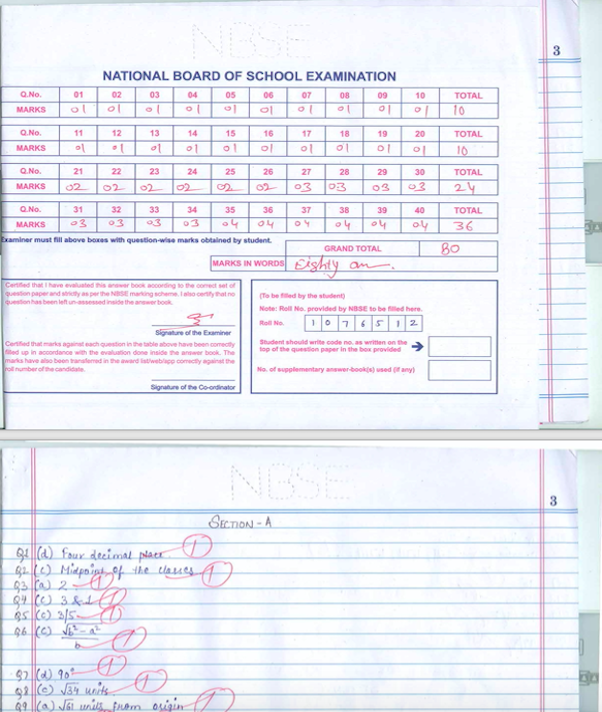 NBSE
3
NATIONAL BOARD OF SCHOOL EXAMINATION
Q.No. 01 02 03 04 05 06 07 08 09 10 TOTAL
MARKS 01 01 01 01 01 01 01 01 01 01 10
Q.No. 11 12 13 14 15 16 17 18 19 20 TOTAL
MARKS 01 01 01 01 01 01 01 01 01 01 10
Q.No. 21 22 23 24 25 26 27 28 29 30 TOTAL
MARKS 02 02 02 02 02 02 03 03 03 03 24
Q.No. 31 32 33 34 35 36 37 38 39 40 TOTAL
MARKS 03 03 03 03 04 04 04 04 04 04 36
Examiner must fill above boxes with question-wise marks obtained by student.
GRAND TOTAL 80
MARKS IN WORDS Eighty
Certified that I have evaluated this answer book according to the correct set of
question paper and strictly as per the NBSE marking scheme. I also certify that no
question has been left un-assessed inside the answer book.
Signature of the Examiner
Certified that marks against each question in the table above have been correctly
filled up in accordance with the evaluation done inside the answer book. The
marks have also been transferred in the award list/web/app correctly against the
roll number of the candidate.
Signature of the Co-ordinator
(To be filled by the student)
Note: Roll No. provided by NBSE to be filled here.
Roll No. 1 0 7 6 5 1 2
Student should write code no. as written on the
top of the question paper in the box provided
No. of supplementary answer-book(s) used (if any)
NBSE
3
SECTION - A
Q1 (d) Four decimal place 1
Q2 (c) Midpoint of the classes 1
Q3 (a) 2 1
Q4 (c) 3 & 1 1
Q5 (c) 3/5 1
Q6 (c) √b²-a²/b 1
Q7 (d) 90° 1
Q8 (c) √34 units 1
Q9 (a) √61 units from origin 1